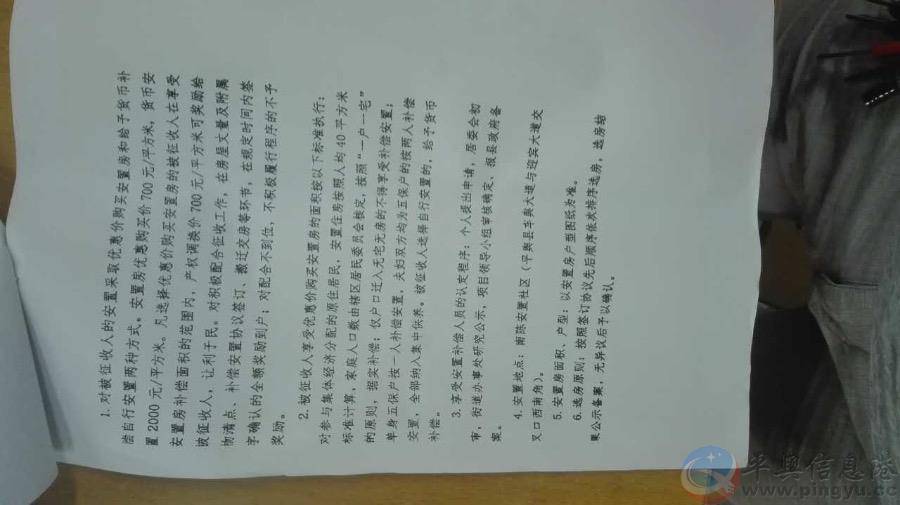 1. 对被征收人的安置采取优惠价购买安置房和给于货币补
偿自行安置两种方式。安置房优惠购买价700元/平方米，货币安
置2000元/平方米。凡选择优惠价购买安置房的被征收人在享受
安置房补偿面积的范围内，产权调换价700元/平方米可奖励给
被征收人，让利于民。对积极配合征收工作，在房屋丈量及附属
物清点、补偿安置协议签订、搬迁交房等环节，在规定时间内签
字确认的全额奖励到户；对配合不到位，不积极履行程序的不予
奖励。
2. 被征收人享受优惠价购买安置房的面积按以下标准执行：
对参与集体经济分配的原住居民，安置住房按照人均40平方米
标准计算，家庭人口数由辖区居民委员会核定，按照“一户一宅”
的原则，据实补偿；仅户口迁入无宅无房的不得享受补偿安置；
单身五保户按一人补偿安置，夫妇双方均为五保户的按两人补偿
安置，全部纳入集中供养。被征收人选择自行安置的，给予货币
补偿。
3. 享受安置补偿人员的认定程序：个人提出申请，居委会初
审，街道办事处研究公示，项目领导小组审核确定、报县政府备
案。
4. 安置地点：南陈安置社区（平舆县车舆大道与迎宾大道交
叉口西南角）。
5. 安置房面积、户型：以安置房户型图纸为准。
6. 选房原则：按照签订协议先后顺序依次排序选房，选房结
果公示备案，无异议后予以确认。
平舆信息港
www.pingyu.cc